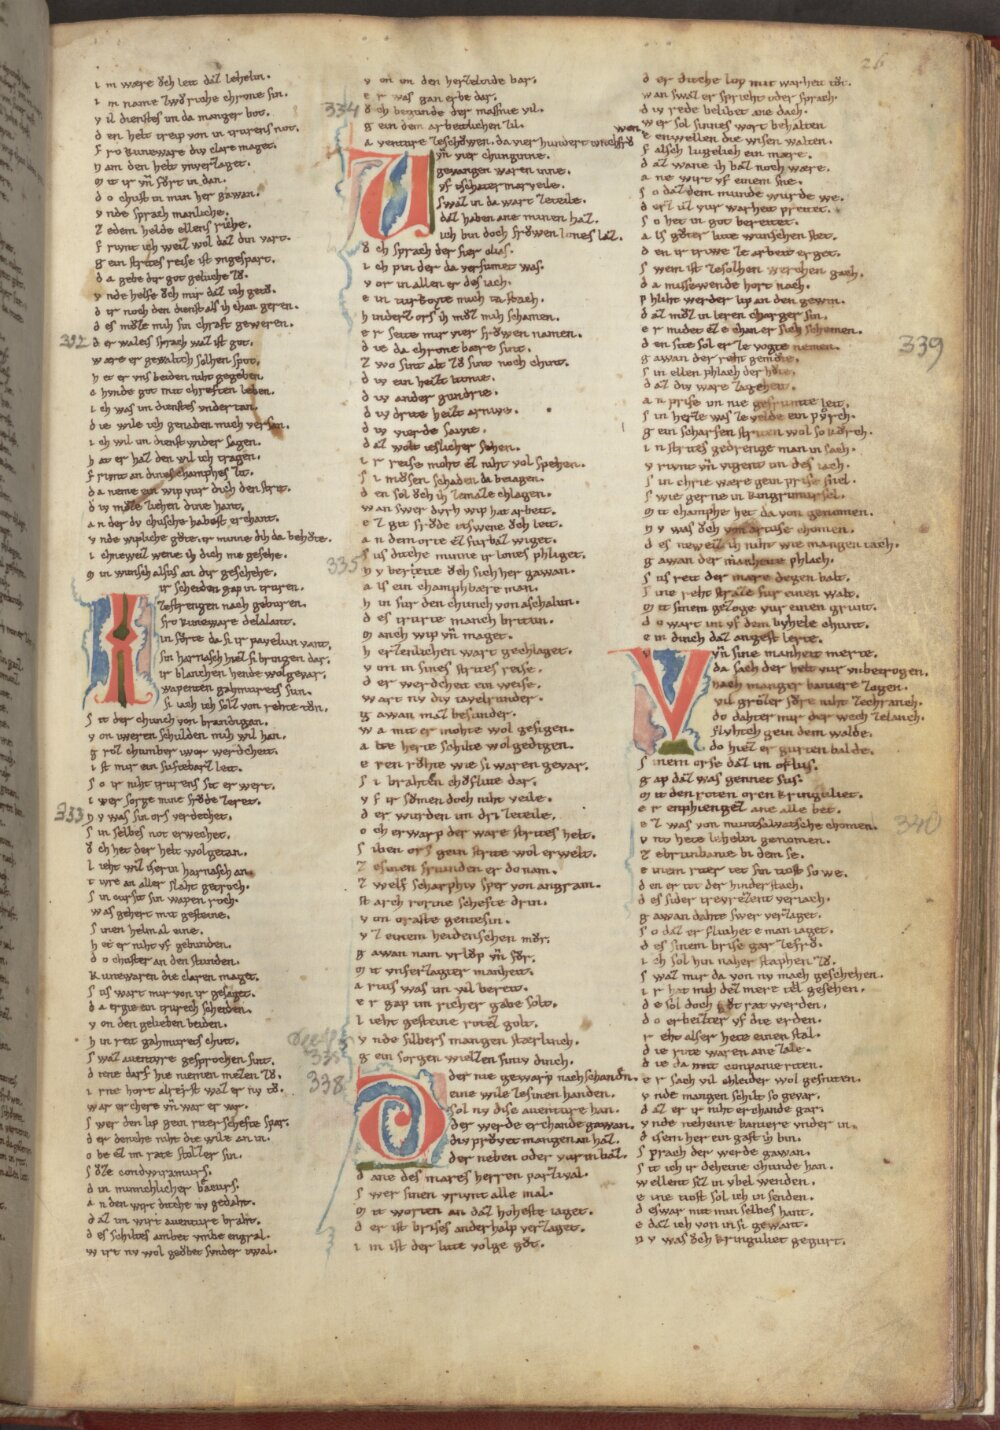 26
i m wære ŏch leit daz lehelin.
i m name zwŏ riche chrone sin.
v il dienstes im da manger bot.
d en helt treip von in trurens not.
f ro kuneware div clare maget.
n am den helt vnverzaget.
m it ir vn̄ fŏrt in dan.
d o chust in min her gawan.
v nde sprach manliche.
z edem helde ellens riche.
f riwnt ich weiz wol daz din vart.
g ein strites reise ist vngespart.
d a gebe dir got geluche zŏ.
v nde helfe ŏch mir daz ich getŏ.
d ir noch den dienst als ich chan geren.
d es mŏze mih sin chraft geweren.
332 d er waleis sprach waz ist got.
w ære er gewaltich solhen spot.
h et er vns beiden niht gegeben
c hvnde got mit chreften leben.
i ch was im dienstes vndertan.
d ie wile ich genaden mich versan.
i ch wil im dienst wider sagen.
h at er haz den wil ich tragen.
f riwnt an dines champhes zit.
d a neme ein wip vur dich den strit.
d iv mŏze ziehen dine hant.
a n der dv chusche habest erchant.
v nde wipliche gŏte. ir minne dih da behŏte.
i chneweiz wenne ih dich me gesehe.
m in wunsch alsus an dir geschehe.
I ir scheiden gap in truren.
zestrengen nach geburen.
fro kuneware delalant.
in fŏrte da si ir pavelun vant.
sin harnasch hiez si bringen dar.
ir blanchen hende wolgevar.
wapenten gahmurets sun.
si iach ich solz von rehte tŏn.
s it der chunch von brandigan.
v on iweren schulden mih wil han.
g roz chumber iwer werdcheit.
i st mir ein sufteban leit.
s o ir niht trurens sit er wert.
i wer sorge mine frŏde zeret.
333 n v was sin ors verdechet.
s in selbes not erwechet.
ŏ ch het der helt wolgetan.
l ieht wiz iserin harnasch an.
t ivre an aller slaht getroch.
s in cursit sin wapen roch.
w as gehert mit gesteine.
s inen helm al eine.
h et er niht vf gebunden.
d o chuster an den stunden.
k unewaren die claren maget.
s us wart mir von ir gesaget.
d a ergie ein trurech scheiden.
v on den gelieben beiden.
h in reit gahmurets chint.
s waz aventivre gesprochen sint.
d iene darf hie niemen mezen zŏ.
i rne hort alrerst waz er nv tŏ.
w ar er chere vn̄ war er var.
s wer den lip gein riterschefte spar.
d er denche niht die wile an in.
o be ez im rate stolzer sin.
s ŏze condwiramurs.
d in minnichlicher bæurs.
a n den wirt dicche nv gedaht.
d az im wirt aventivre braht.
d es schiltes ambet vmbe engral.
w irt nv wol geŏbet sunder twal.
v on im den herzeloide bar.
e r was gan erbe dar.
334 ŏ ch begunde der massnie vil.
g ein dem arbeitlichen zil.
a ventivre zeschŏwen. da vier hundert ivnchfrŏwen.
U vn̄ vier chunginne.
gevangen waren inne.
vf tschater marveile.
swaz in da wart zeteile.
daz haben ane minen haz.
ich bin doch frŏwen lones laz.
ŏ ch sprach der krier clias.
i ch pin der da versumet was.
v or in allen er des iach.
e in turkoyte mich da stach.
h inderz ors ih mŏz mih schamen.
e r seite mir vier frŏwen namen.
d ie da chrone bære sint.
z wo sint alt zŏ sint noch chint.
d iv ein heizt itonie.
d iv ander gundrie.
d iv drite heizt arnive.
d iv vierde saive.
d az wolt ieslicher sehen.
i r reise moht ez niht vol spehen.
s i mŏsen schaden da beiagen.
d en sol ŏch ih zemaze chlagen.
w an swer dvrh wip hat arbeit.
e z git frŏde etswene ŏch leit.
a n dem orte ez furbaz wiget.
s us dicche minne ir lones phliget.
335 n v bereite ŏch sich her gawan.
a ls ein champhbære man.
h in fur den chunch von aschalun.
d es trurte manch britun.
m anch wip vn̄ maget.
h erzenlichen wart gechlaget.
v on in sines strites reise.
d er werdcheit ein weise.
w art nv div tavelrunder.
g awan maz besunder.
w a mit er mohte wol gesigen.
a lte herte schilte wolgedigen.
e ren rŏhte wie si waren gevar.
s i brahten chŏflute dar.
v f ir sŏmen doch niht veile.
d er wurden im dri zeteile.
o ch erwarp der ware strites helt.
s iben ors gein strite wol erwelt.
z esinen friunden er do nam.
z welf scharphiv sper von angram.
s tarch rorine schefte drin.
v on oraste gentesin.
v z einem heidenschen mŏr.
g awan nam vrlŏp vn̄ fŏr.
m it vnferzagter manheit.
a rtus was im vil bereit.
e r gap im richer gabe solt.
l ieht gesteine rotez golt.
v nde silbers mangen stærlinch.
g ein sorgen wielzen siniv dinch.
338 D der nie gewarp nach schanden.
eine wile zesinen handen.
sol nv dise aventivre han.
der werde erchande gawan.
div prŏvet mangen an haz.
der neben oder vur in baz.
d ane des mæres herren parzival.
s wer sinen vriwnt alle mal.
m it worten an daz hohste iaget.
d er ist brises anderhalp verzaget.
i m ist der lute volge gŏt.
d er dicche lop mit warheit tŏt.
w an swaz er spricht oder sprach.
d iv rede belibet ane dach.
w er sol sinnes wort behalten
e enwellen die wisen walten.
f alsch lugelich ein mære.
d az wane ih baz noch wære.
a ne wirt vf einem sne.
s o daz dem munde wurde we.
d erz uz vur warheit preitet.
s o het in got bereitet.
a ls gŏter liute wunschen stet.
d en ir triwe ze arbeit erget.
s wem ist zesolhen werchen gach.
d a missewende hort nach.
p hliht werder lip an den gewin.
d az mŏz in leren chranger sin.
e r midet ez e chan er sich schemen.
339 d en site sol er ze vogte nemen.
g awan der reht gemŏte.
s in ellen phlach der hŏte.
d az div ware zageheit.
a n prise im nie gefrumte leit.
s in herze was ze velde ein pvrch.
g ein scharfen striten wol so kŏrch.
i n strites gedrenge man in sach.
v riwnt vn̄ vigent im des iach.
s in chrie wære gein prise snel.
s wie gerne in kingrimursel.
m it champhe het da von genomen.
n v was ŏch von artuse chomen.
d es neweiz ih niht wie mangen tach.
g awan der manheite phlach.
s us reit der mære degen balt.
s ine reht straze fur einen walt.
m it sinem gezoge vur einen grunt.
d o wart im vf dem byhele chunt.
e in dinch daz angest lerte.
V vn̄ sine manheit merte.
da sach der helt vur vnbetrogen.
nach manger baniere zogen.
vil grozer fŏrt niht zechranch.
do dahter mir der wech zelanch.
flvhtech gein dem walde.
do hiez er gurten balde.
s inem orse daz im orilus.
g ap daz was gennet sus.
m it den roten oren kringuliet.
e r enphiengez ane alle bet.
340 e z was von muntsalvatsche chomen.
v nt hete lehelin genomen.
z ebrunbanie bi dem se.
e inem riter tet sin tiost so we.
d en er tot der hinder stach.
d es sider trevrezent veriach.
g awan dahte swer verzaget.
s o daz er fliuhet e man iaget.
d es sinem brise gar zefrŏ.
i ch sol hin naher staphen zŏ.
s waz mir da von nv mach geschehen.
i r hat mih dez mere teil gesehen.
d e sol doch gŏt rat werden.
d o erbeizter vf die erden.
r eht alser hete einen stal.
d ie rite waren ane zal.
d ie da mit conpanie riten.
e r sach vil chleider wol gesniten.
v nde mangen schilt so gevar.
d az er ir niht erchande gar.
v nde neheine baniere vnder in.
d isem her ein gast ih bin.
s prach der werde gawan.
s it ich ir deheine chunde han.
w ellent siz in vbel wenden.
e ine tiost sol ich in senden.
d eswar mit min selbes hant.
e daz ich von in si gewant.
n v was ŏch kringuliet gegurt.